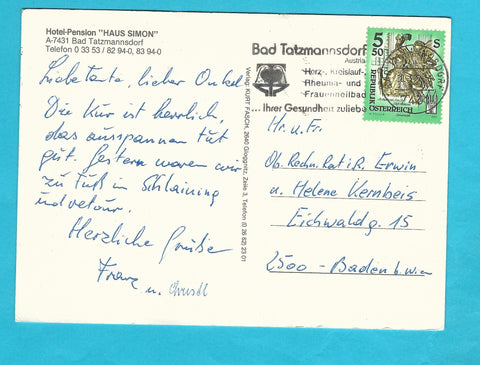 Hotel-Pension "HAUS SIMON"
A-7431 Bad Tatzmannsdorf
Telefon 0 33 53 / 82 94 0, 83 94-0
Liebe Tante, lieber Onkel
Die Kur ist herrlich,
das ausspannen tut
gut. Gestern waren wir
zu Fuß in Schlaining
und retour.
Herzliche Grüße
Franz
u. Christl
Verlag: KURT FASCH, 2640 Gloggnitz, Zeile 3, Telefon (0 26 62) 23 01
Bad Tatzmannsdorf
Austria
Herz-, Kreislauf-
Rheuma- und
Frauenheilbad
... Ihrer Gesundheit zuliebe
5 50
S
REPUBLIK
ÖSTERREICH
Hr. u. Fr.
Ob. Rechn. Rat i R. Erwin
u. Helene Kernbeis
Eichwaldg. 15
2500 - Baden b. Wien